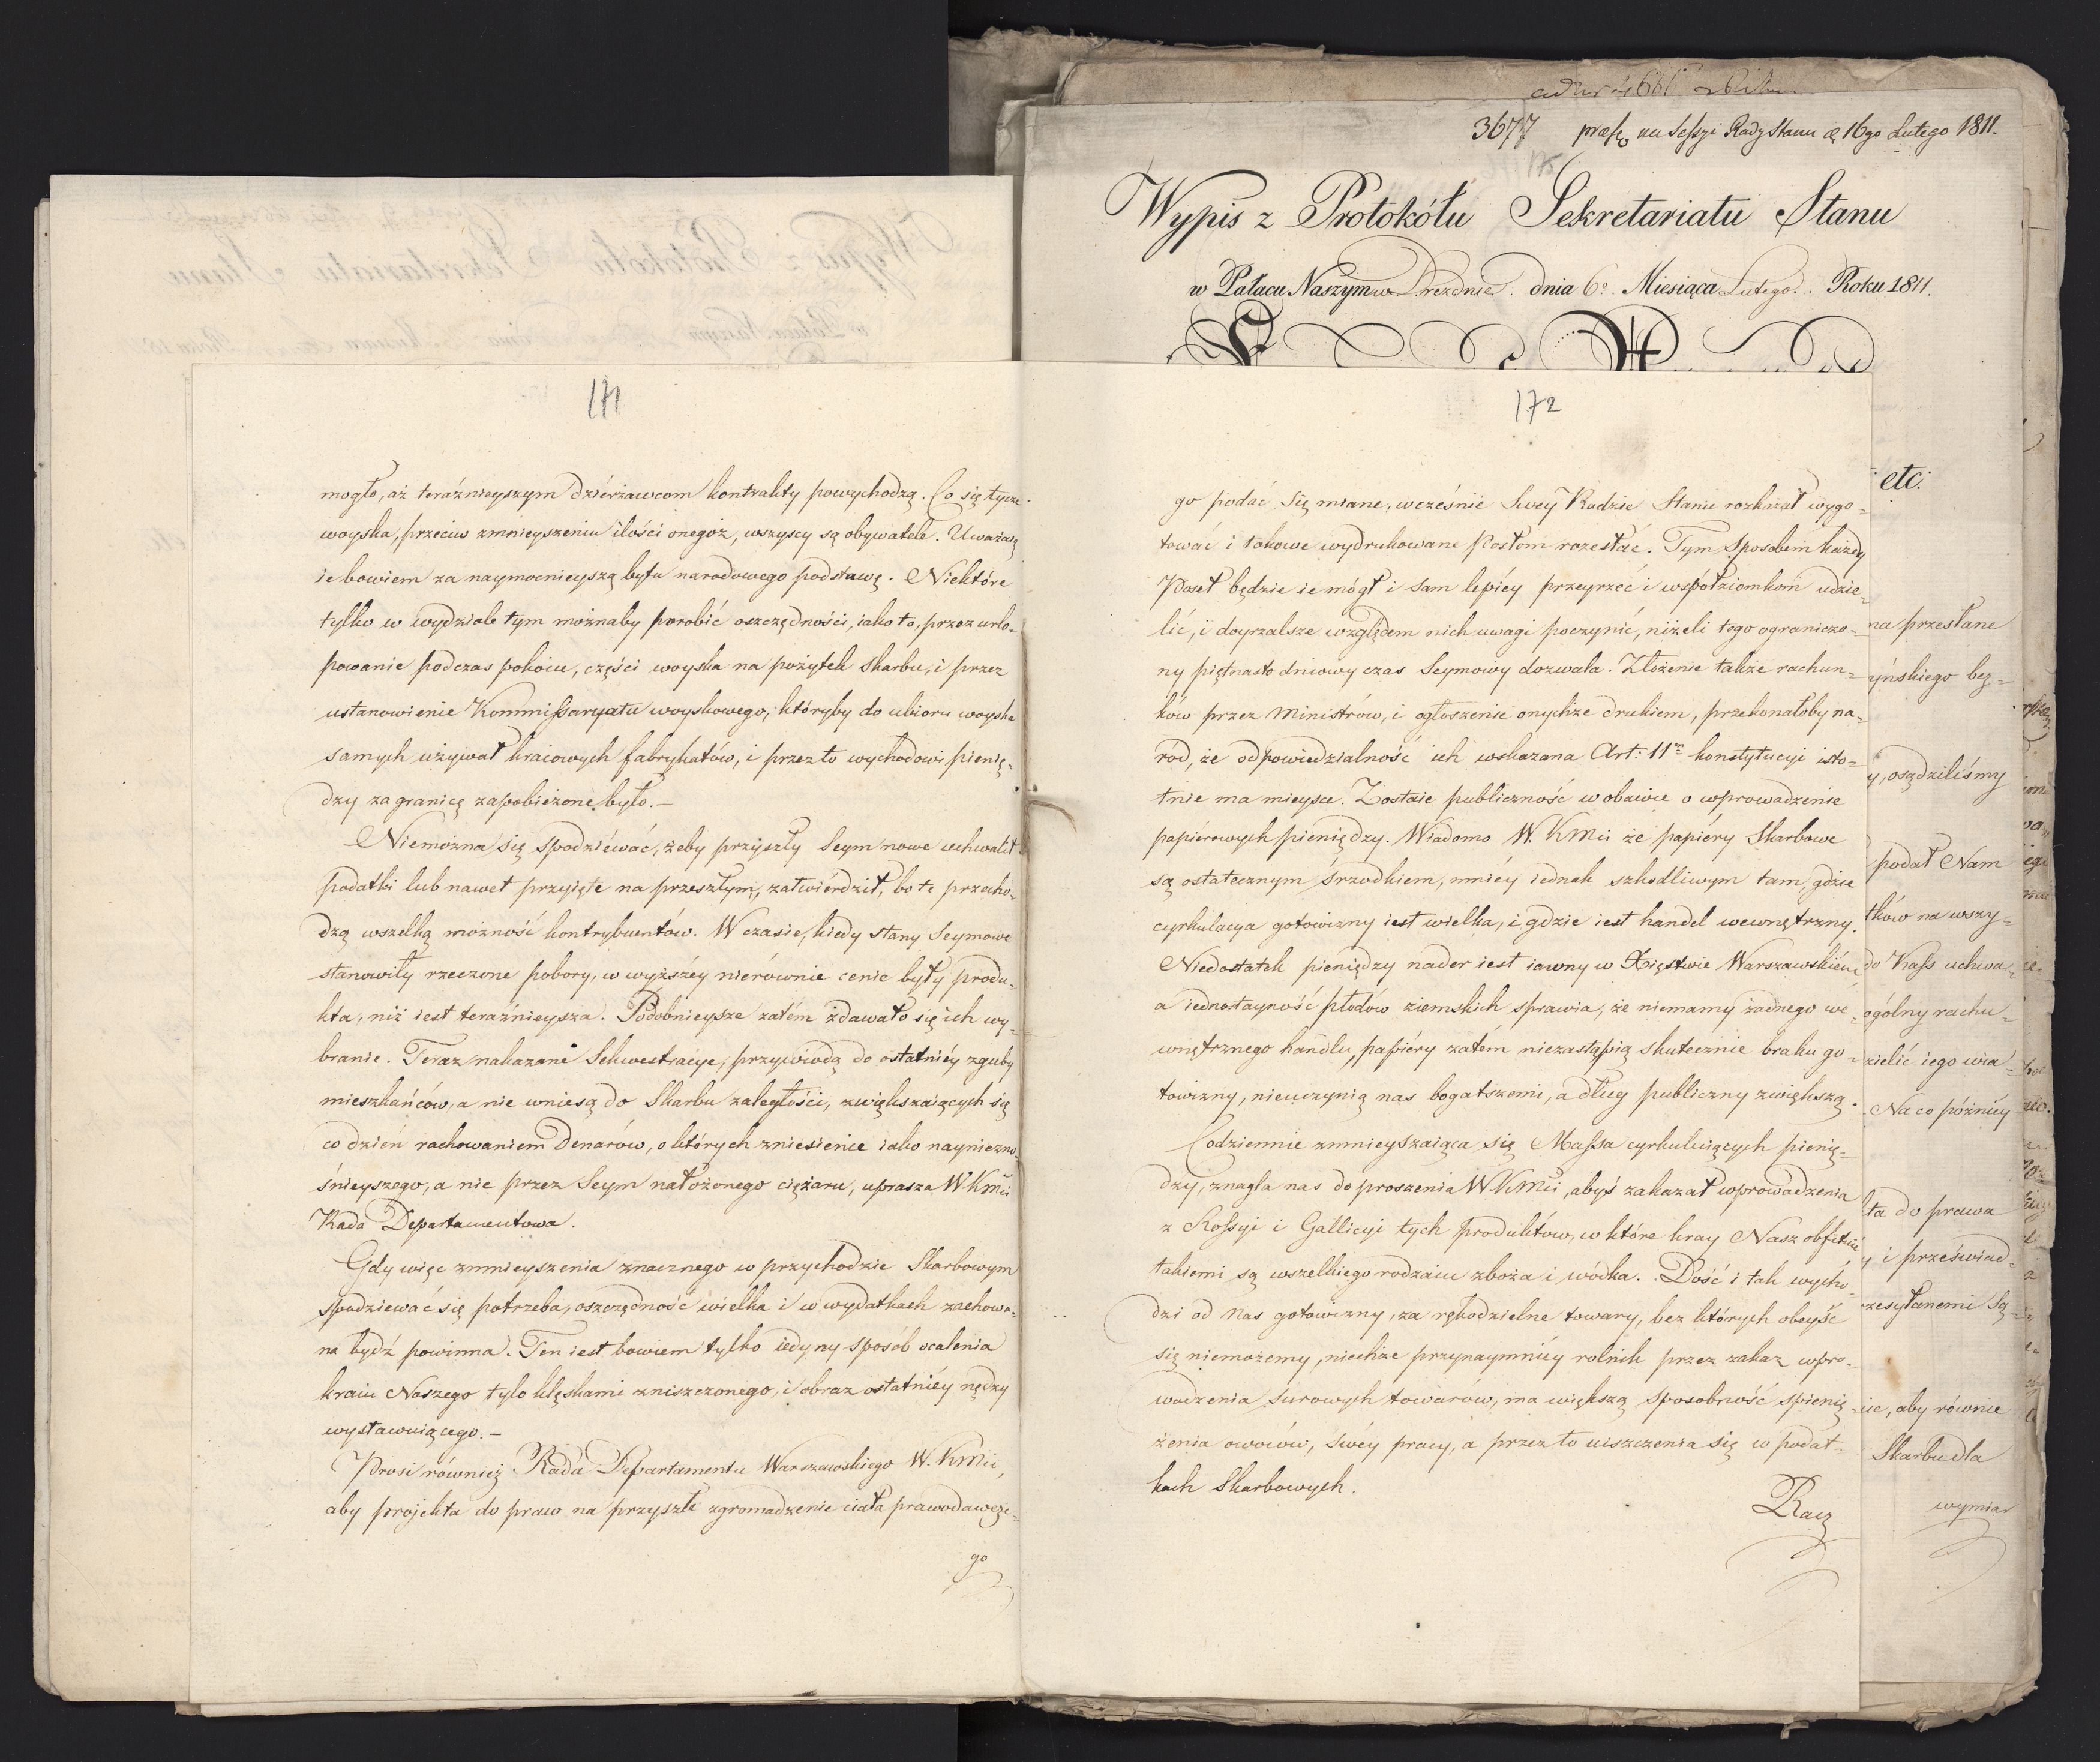 171
mogło, aż teraźnieyszym dziérżawcom kontrakty powychodzą. Co się tycze
woyska, przeciw zmnieyszeniu ilości onegoż, wszyscy są obywatele. Uważaią
ie bowiem za naymocnieyszą bytu narodowego podstawę. Niektóre
tylko w wydziale tym możnaby porobić oszczędności, iako to, przez urlo-
powanie podczas pokoiu, części woyska na pożytek skarbu, i przez
ustanowienie Kommissaryatu woyskowego, któryby do ubioru woyska
samych używał kraiowych fabrykatów, i przez to wychodowi pienię-
dzy zagranicę zapobieżone było.—
Niemożna się spodziéwać, żeby przyszły Seym nowe uchwalił
podatki lub nawet przyięte na przeszłym, zatwiérdził, bo te przecho-
dzą wszelką możność kontrybuentów. W czasie, kiedy stany Seymowe
stanowiły rzeczone pobory, w wyższéy nierównie cenie były produ-
kta, niż iest teraźnieysza. Podobnieysze zatém zdawało się ich wy-
branie. Teraz nakazane Sekwestracye, przywiodą do ostatniéy zguby
mieszkańców, a nie wniesą do Skarbu zaległości, zwiększaiących się
co dzień rachowaniem Denarów, o których zniesienie iako nayniezno-
śnieyszego, a nie przez Seym nałożonego ciężaru, uprasza WKMci
Rada Departamentowa.
Gdy więc zmnieyszenia znacznego w przychodzie Skarbowym
spodziewać się potrzeba, oszczędność wielka i w wydatkach zachowa-
na bydź powinna. Ten iest bowiem tylko iedyny sposób ocalenia
kraiu Naszego tylo klęskami zniszczonego, i obraz ostatniéy nędzy
wystawuiącego.—
Prosi również Rada Departamentu Warszawskiego W. KMci,
aby projekta do praw na przyszłe zgromadzenie ciała prawodawcze-
go
3677 na Sessyi Rady Stanu d. 16go Lutego 1811.
Wypis z Protokółu Sekretariatu Stanu
w Pałacu Naszym w Dreznie dnia 6o Miesiąca Lutego Roku 1811.
172
go podać się miane, wcześnie Swéy Radzie Stanu rozkazał wygo-
tować i takowe wydrukowane Posłom rozesłać. Tym sposobem każdy
Poseł będzie ie mógł i sam lepiéy przeyrzeć i współziomkom udzie-
lić, i doyrzalsze względem nich uwagi poczynić, niżeli tego ograniczo-
ny piętnasto dniowy czas Seymowy dozwala. Złożenie także rachun-
ków przez Ministrów, i ogłoszenie onychże drukiem, przekonałoby na-
ród, że odpowiedzialność ich wskazana Art: 11m konstytucyi isto-
tnie ma mieysce. Zostaie publiczność w obawie o wprowadzenie
papiérowych pieniędzy. Wiadomo W. KMci że papiéry Skarbowe
są ostatecznym śrzodkiem, mniéy iednak szkodliwym tam, gdzie
cyrkulacya gotowizny iest wielka, i gdzie iest handel wewnętrzny.
Niedostatek pieniędzy nader iest iawny w Xięstwie Warszawskiém
a iednostayność płodów ziemskich sprawia, że niemamy żadnego we-
wnętrznego handlu, papiéry zatém niezastąpią skutecznie braku go-
towizny, nieuczynią nas bogatszemi, a dług publiczny zwiększą.
Codziennie zmnieyszaiąca się Massa cyrkuluiących pienię-
dzy, znagla nas do proszenia WKMci, abyś zakazał wprowadzenia
z Rossyi i Gallicyi tych produktów, w które kray Nasz obfituie
takiemi są wszelkiego rodzaiu zboża i wódka. Dość i tak wycho-
dzi od nas gotowizny, za rękodzielne towary, bez których obeyść
się niemożemy, niechże przynaymniéy rolnik przez zakaz wpro-
wadzenia surowych towarów, ma większą sposobność spienię-
żenia owoców, swéy pracy, a przez to uiszczenia się w podat-
kach Skarbowych.
Racz
etc.
na przesłane
yńskiego bez-
y, osądziliśmy
podał Nam
tków na wszy-
do Kass uchwa-
ogólny rachu-
zielić iego wia-
Na co późniéy
ta do prawa
y i przeświad-
zesyłanemi Są-
ie, aby równie
Skarbu dla
wymiar